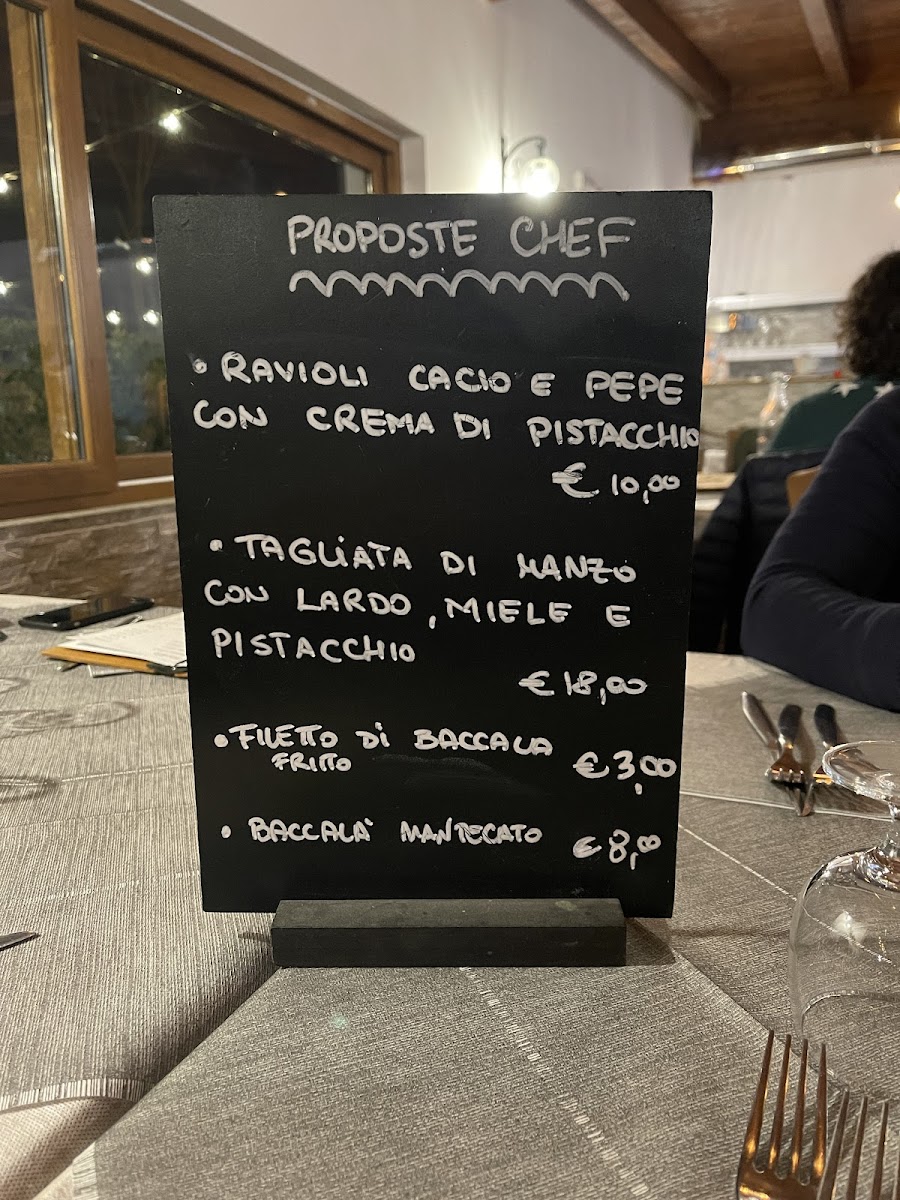 PROPOSTE CHEF
• RAVIOLI CACIO E PEPE
CON CREMA DI PISTACCHIO
€ 10,00
• TAGLIATA DI MANZO
CON LARDO, MIELE E
PISTACCHIO
€ 18,00
• FILETTO DI BACCALA
FRITTO € 3,00
• BACCALA' MANTECATO € 8,00